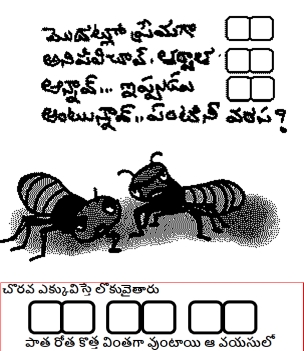 మొదట్లో ప్రేమగా
అనిపించావ్, తర్వాత
అన్నావ్... ఇప్పుడు
అంటున్నావ్.. ఏంటిని వరస?
చొరవ ఎక్కువిస్తే లొకువైతారు
పాత రోత కొత్త వింతగా వుంటాయి ఆ వయసులో